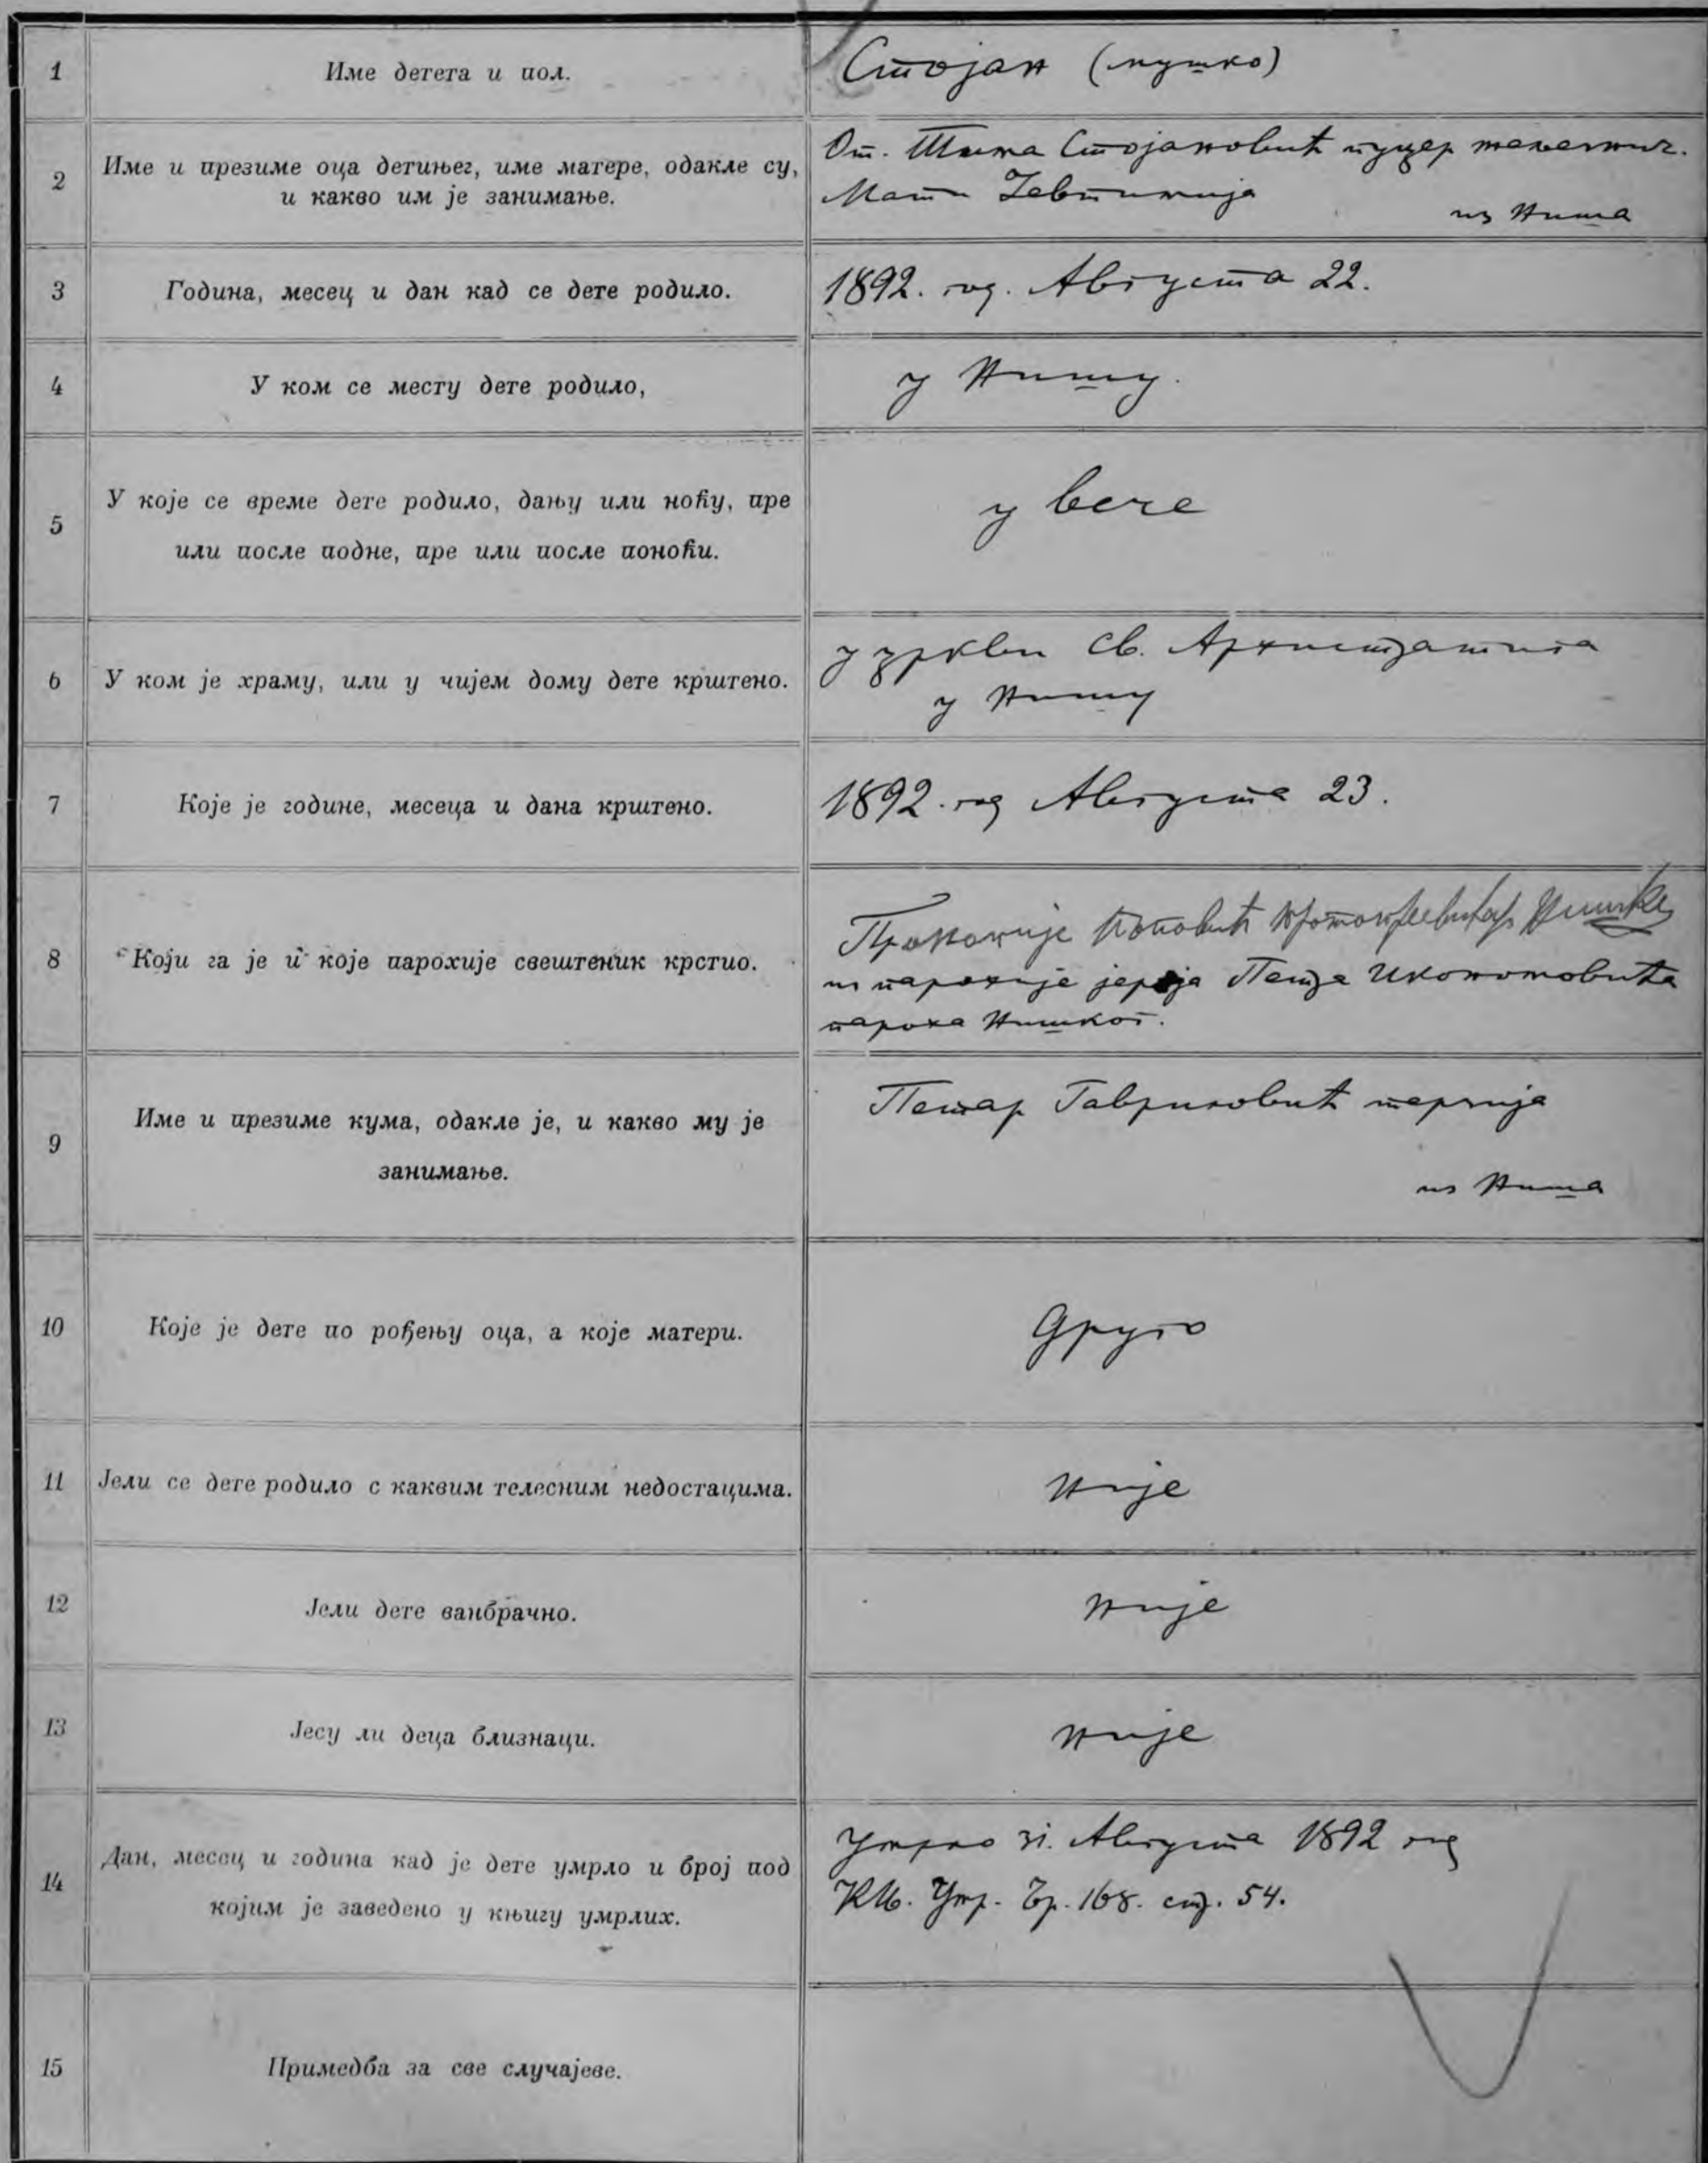 1
Име детета и пол.
Стојан (мушко)
2
Име и презиме оца детињег, име матере, одакле су,
и какво им је занимање.
От. Тома Стојановић пуцер
Мати Јевтимија
из Ниша
3
Година, месец и дан кад се дете родило.
1892. год. Августа 22.
4
У ком се месту дете родило,
у Нишу.
5
У које се време дете родило, дању или ноћу, пре
или после подне, пре или после поноћи.
у вече
6
У ком је храму, или у чијем дому дете крштено.
у цркви св. Архистратига
у Нишу
7
Које је године, месеца и дана крштено.
1892. год Августа 23.
8
Који га је и које парохије свештеник крстио.
Прокопије Поповић
из парохије јереја Петра Икономовића
пароха Нишког.
9
Име и презиме кума, одакле је, и какво му је
занимање.
Петар Гавриловић терзија
из Ниша
10
Које је дете по рођењу оца, а које матери.
Друго
11
Јели се дете родило с каквим телесним недостацима.
није
12
Јели дете ванбрачно.
није
13
Јесу ли деца близнаци.
није
14
Дан, месец и година кад је дете умрло и број под
којим је заведено у књигу умрлих.
Умрло 31. Августа 1892 год
Књ. Умр. Бр. 168. стр. 54.
15
Примедба за све случајеве.